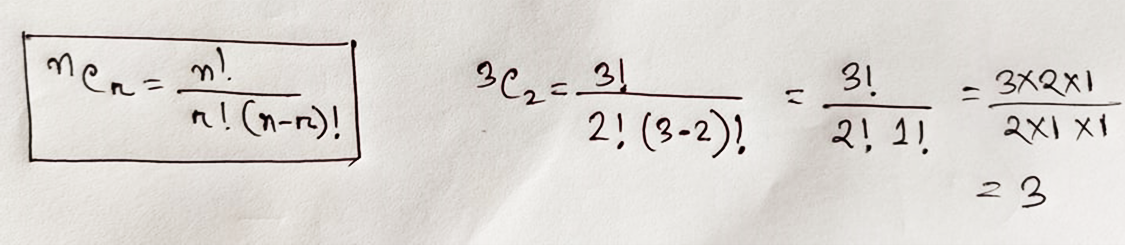 ⁿCᵣ = n! / r! (n-r)!
³C₂ = 3! / 2! (3-2)! = 3! / 2! 1! = 3×2×1 / 2×1×1
= 3